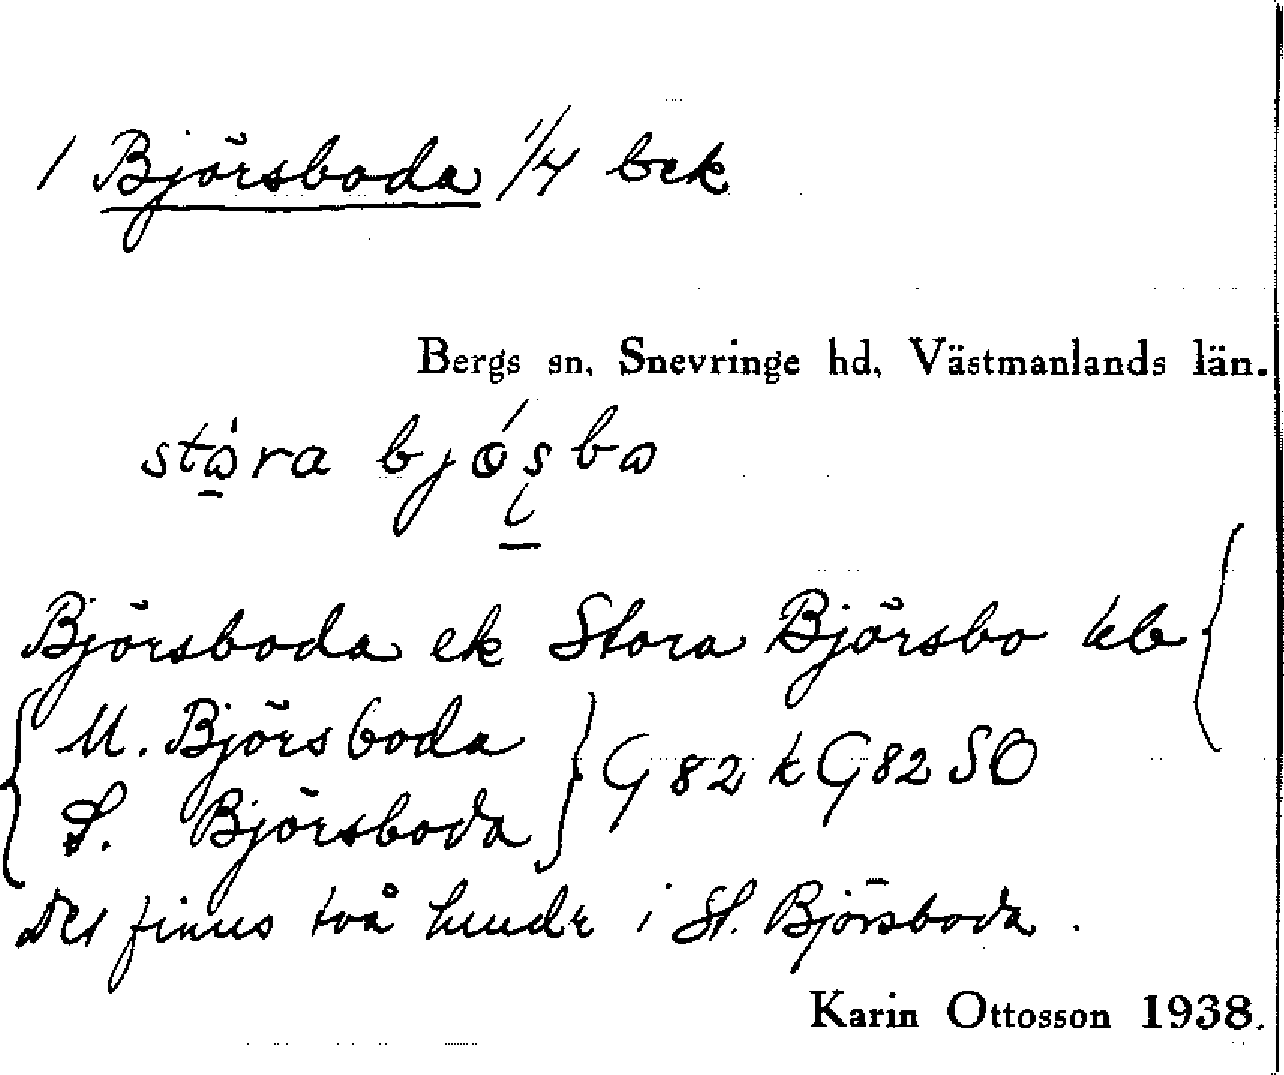 1 Björsboda 1/4 bek
Bergs sn, Snevringe hd, Västmanlands län.
stora bjo̱sbo
Björsboda ek Stora Björsbo kb {
{ M. Björsboda
S. Björsboda } G 82 k G 82 SO
Det finns två bruk i St. Björsboda.
Karin Ottosson 1938.